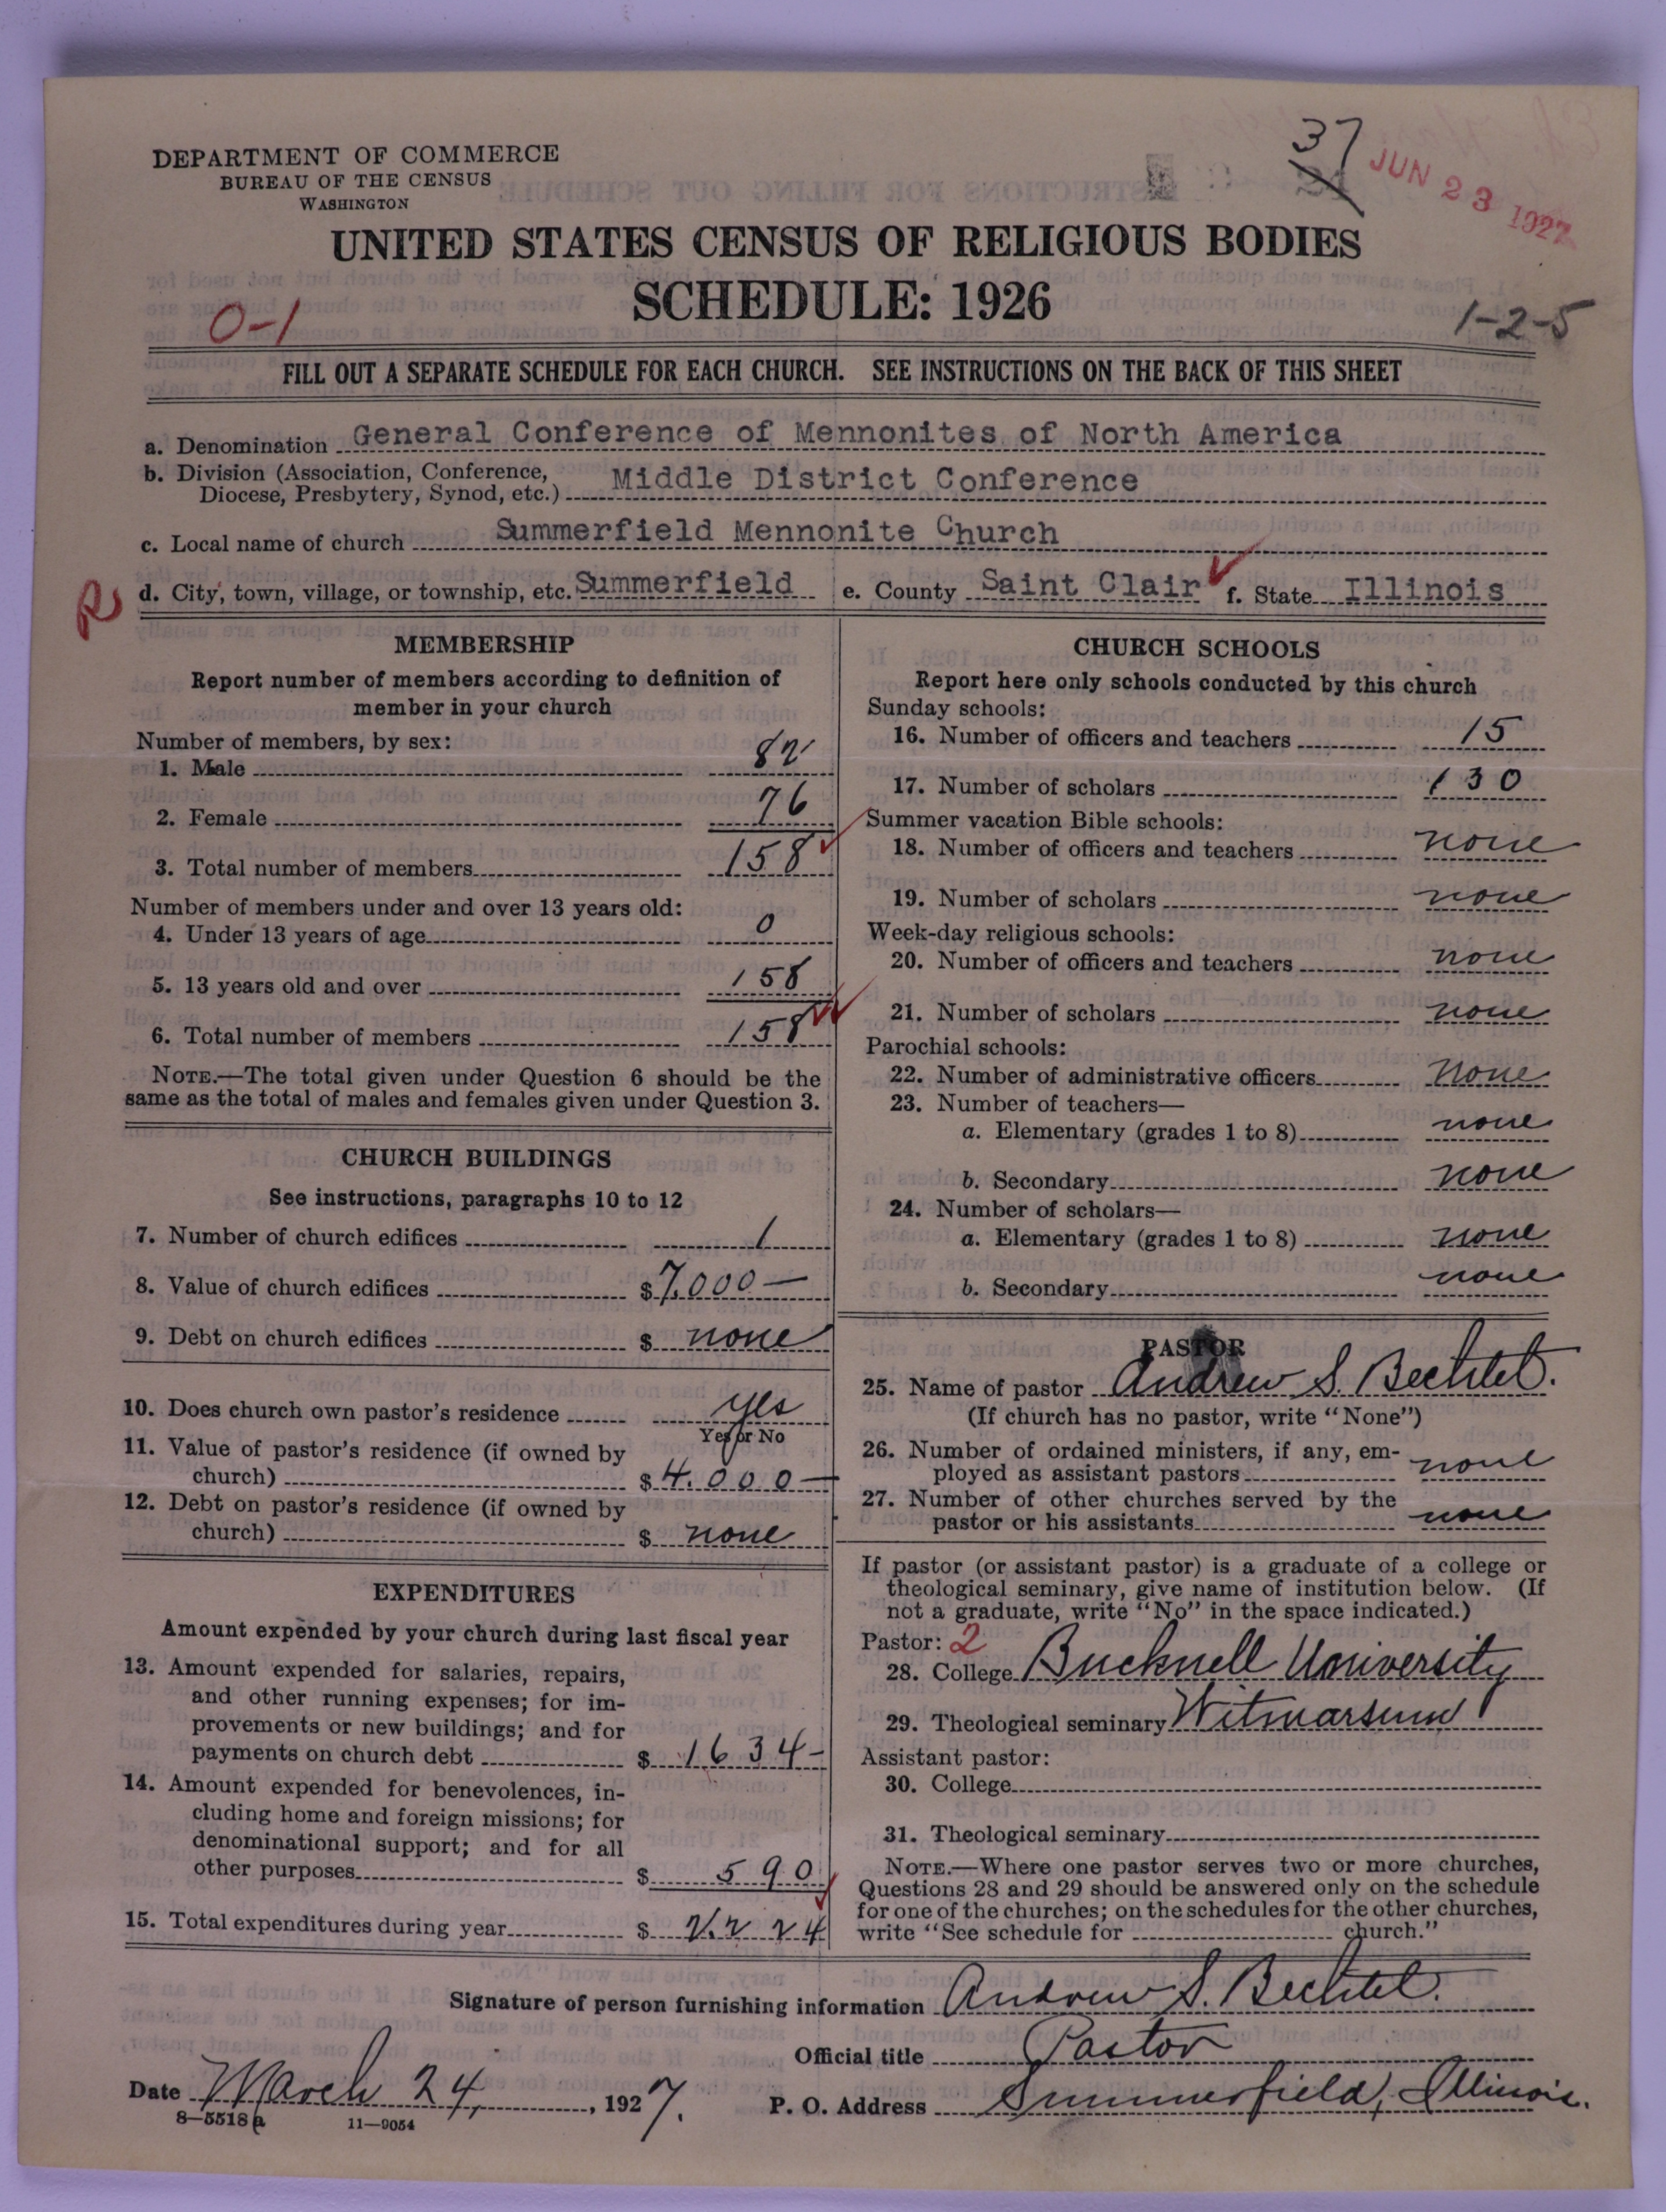 DEPARTMENT OF COMMERCE
BUREAU OF THE CENSUS
WASHINGTON
37
JUN 23 1927
UNITED STATES CENSUS OF RELIGIOUS BODIES
SCHEDULE: 1926
0-1
1-2-5
FILL OUT A SEPARATE SCHEDULE FOR EACH CHURCH. SEE INSTRUCTIONS ON THE BACK OF THIS SHEET
a. Denomination General Conference of Mennonites of North America
b. Division (Association, Conference,
Diocese, Presbytery, Synod, etc.) Middle District Conference
c. Local name of church Summerfield Mennonite Church
R d. City, town, village, or township, etc. Summerfield e. County Saint Clair f. State Illinois
MEMBERSHIP
Report number of members according to definition of
member in your church
Number of members, by sex:
1. Male 82
2. Female 76
3. Total number of members 158
Number of members under and over 13 years old:
4. Under 13 years of age 0
5. 13 years old and over 158
6. Total number of members 158
NOTE.—The total given under Question 6 should be the
same as the total of males and females given under Question 3.
CHURCH BUILDINGS
See instructions, paragraphs 10 to 12
7. Number of church edifices 1
8. Value of church edifices $7,000—
9. Debt on church edifices $ none
10. Does church own pastor's residence yes
Yes or No
11. Value of pastor's residence (if owned by
church) $4.000—
12. Debt on pastor's residence (if owned by
church) $ none
EXPENDITURES
Amount expended by your church during last fiscal year
13. Amount expended for salaries, repairs,
and other running expenses; for im-
provements or new buildings; and for
payments on church debt $ 1634-
14. Amount expended for benevolences, in-
cluding home and foreign missions; for
denominational support; and for all
other purposes $ 590
15. Total expenditures during year $ 2.224
CHURCH SCHOOLS
Report here only schools conducted by this church
Sunday schools:
16. Number of officers and teachers 15
17. Number of scholars 130
Summer vacation Bible schools:
18. Number of officers and teachers none
19. Number of scholars none
Week-day religious schools:
20. Number of officers and teachers none
21. Number of scholars none
Parochial schools:
22. Number of administrative officers None
23. Number of teachers—
a. Elementary (grades 1 to 8) none
b. Secondary none
24. Number of scholars—
a. Elementary (grades 1 to 8) none
b. Secondary none
PASTOR
25. Name of pastor Andrew S. Bechtel.
(If church has no pastor, write "None")
26. Number of ordained ministers, if any, em-
ployed as assistant pastors none
27. Number of other churches served by the
pastor or his assistants none
If pastor (or assistant pastor) is a graduate of a college or
theological seminary, give name of institution below. (If
not a graduate, write "No" in the space indicated.)
Pastor: 2
28. College Bucknell University
29. Theological seminary Witmarsum
Assistant pastor:
30. College
31. Theological seminary
NOTE.—Where one pastor serves two or more churches,
Questions 28 and 29 should be answered only on the schedule
for one of the churches; on the schedules for the other churches,
write "See schedule for church."
Signature of person furnishing information Andrew S. Bechtel.
Official title Pastor
Date March 24, 1927.
P. O. Address Summerfield, Illinois.
8—5518a 11—9054